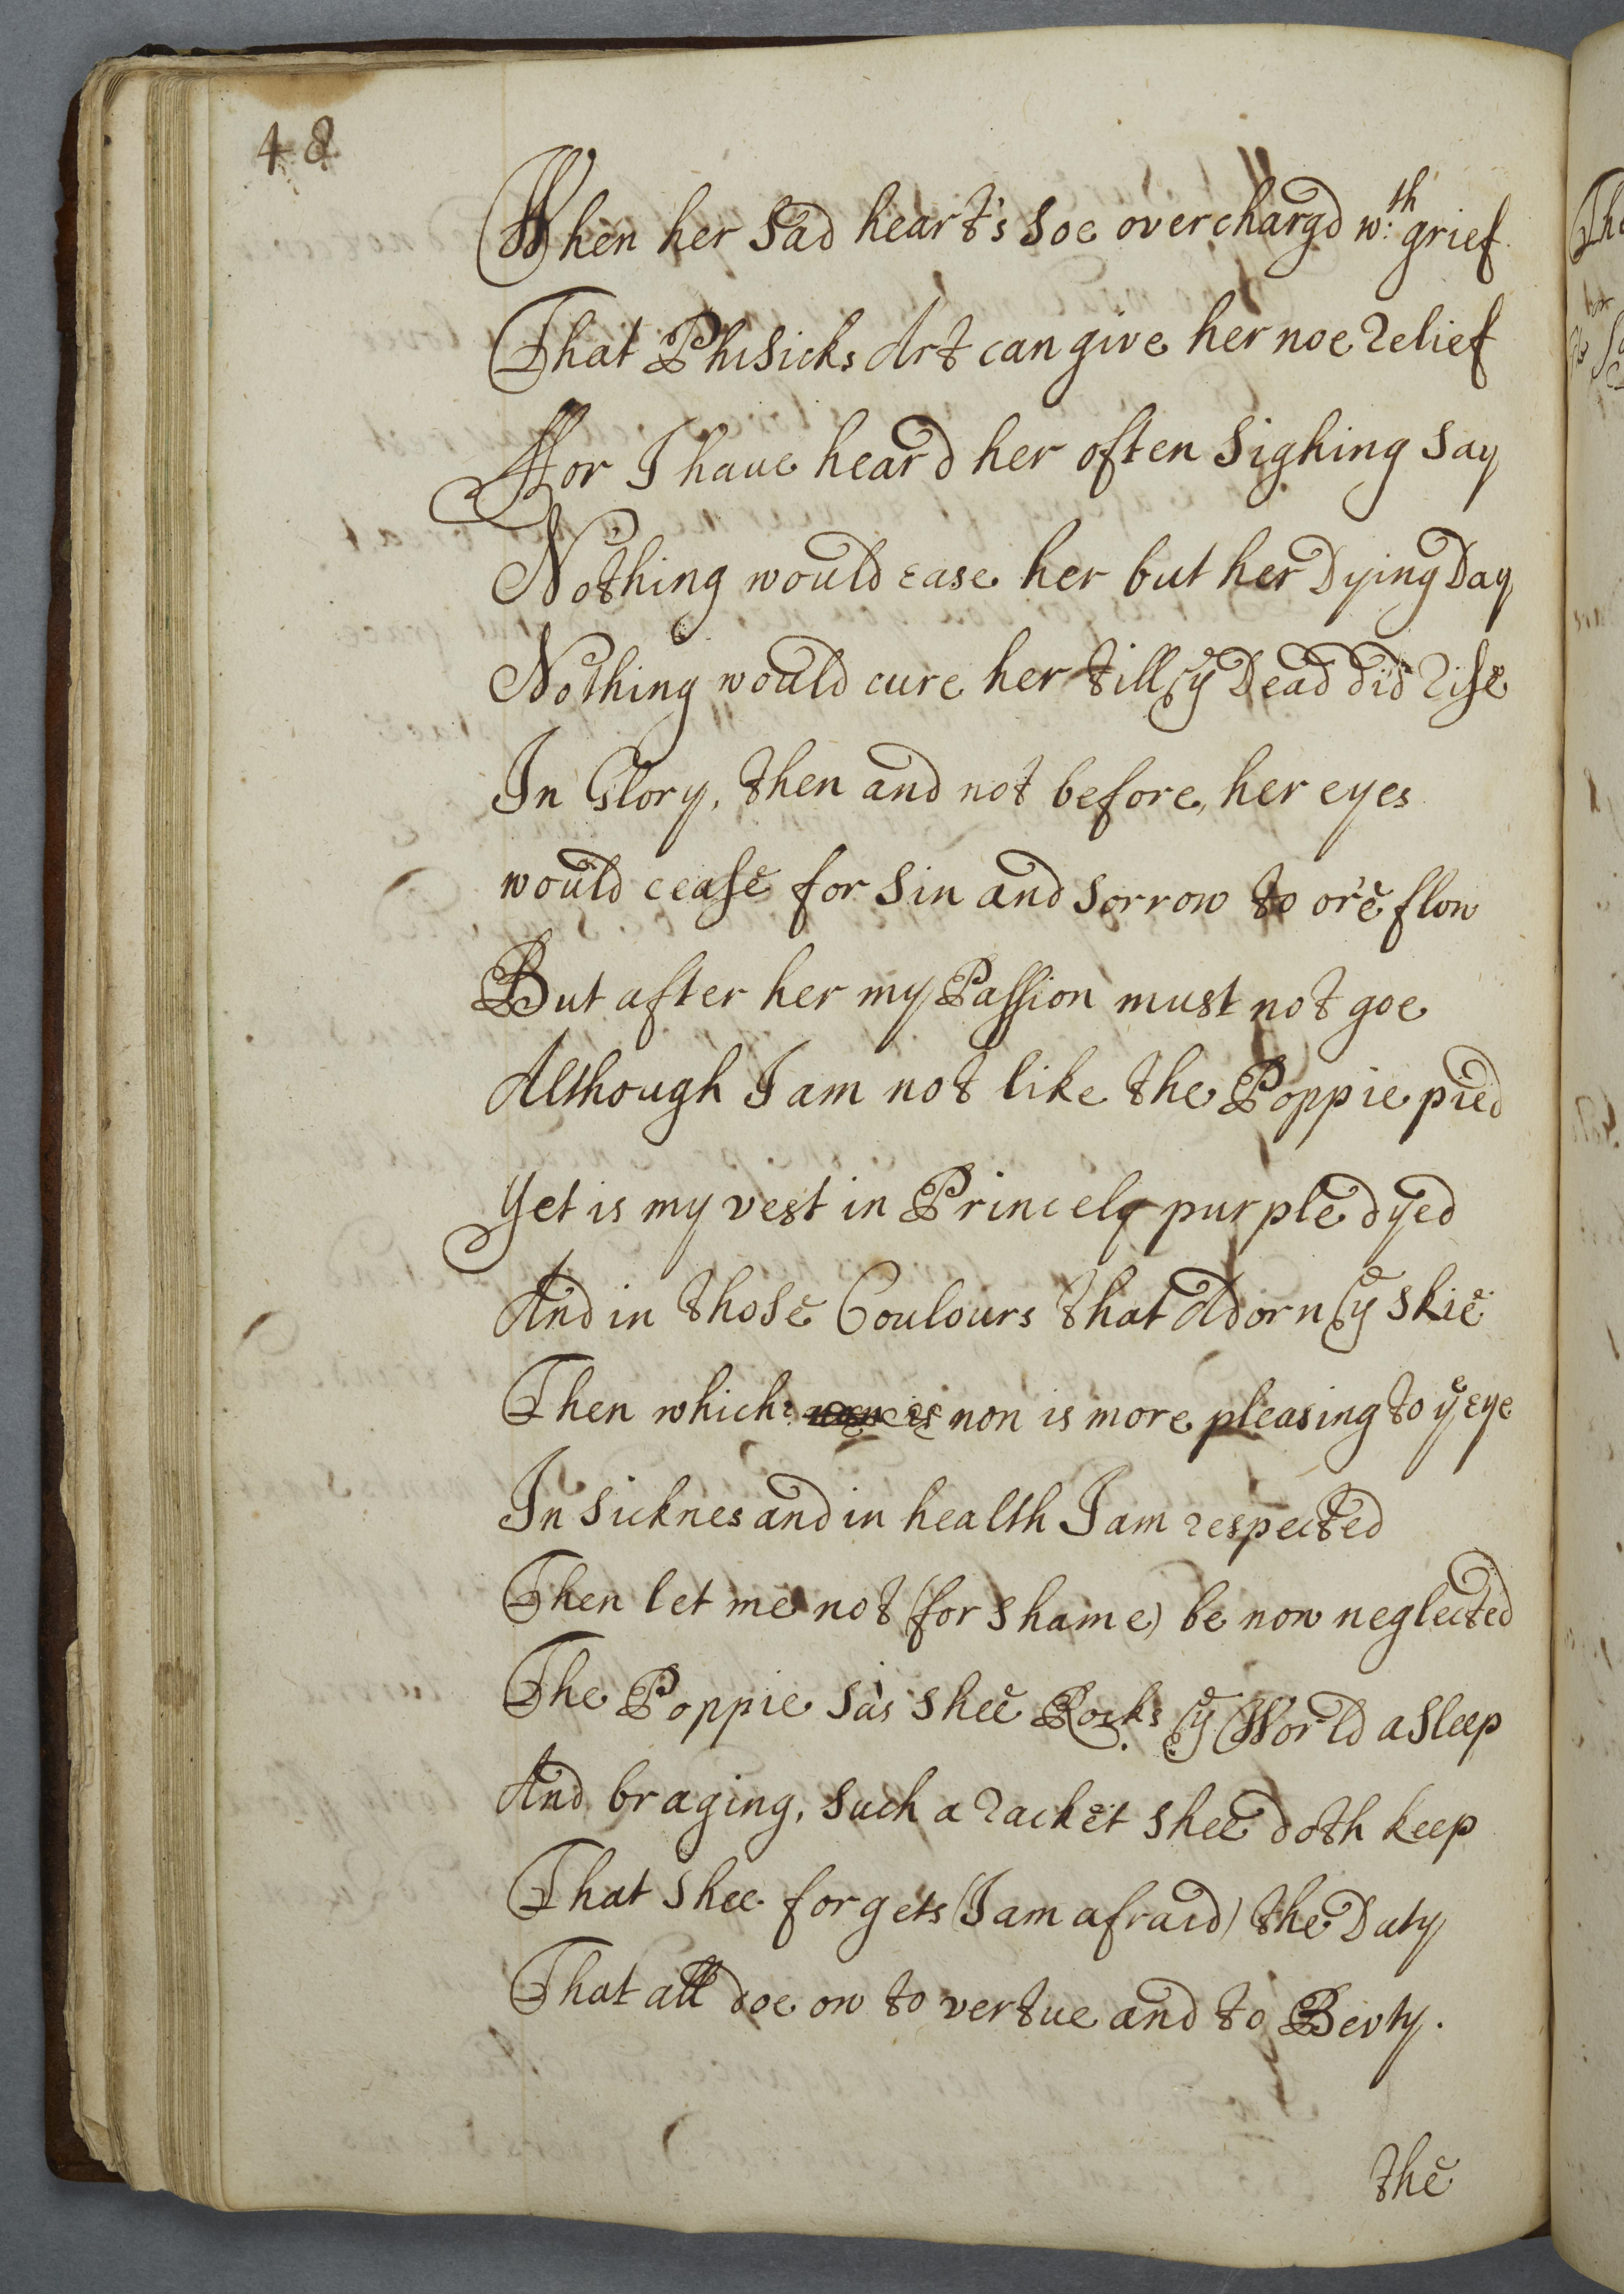 48
When her Sad heart's Soe overchargd wth: grief
That Phisicks Art can give her noe Relief
ffor I haue heard her often Sighing Say
Nothing would ease her but her Dying Day
Nothing would cure her till ye Dead did Rise
In Glory, then and not before, her eyes
would cease for Sin and Sorrow to or'e flow
But after her my Passion must not goe
Although I am not like the Poppie pied
Yet is my vest in Princely purple dyed
And in those Coulours that Adorn ye Skie
Then which non is non is more pleasing to ye eye
In Sicknes and in health I am respected
Then let me not (for Shame) be now neglected
The Poppie sa's Shee Rocks ye World a Sleep
And braging, Such a racket Shee doth keep
That Shee forgets (I am afraid) the Duty
That all doe ow to vertue and to Bevty.
the